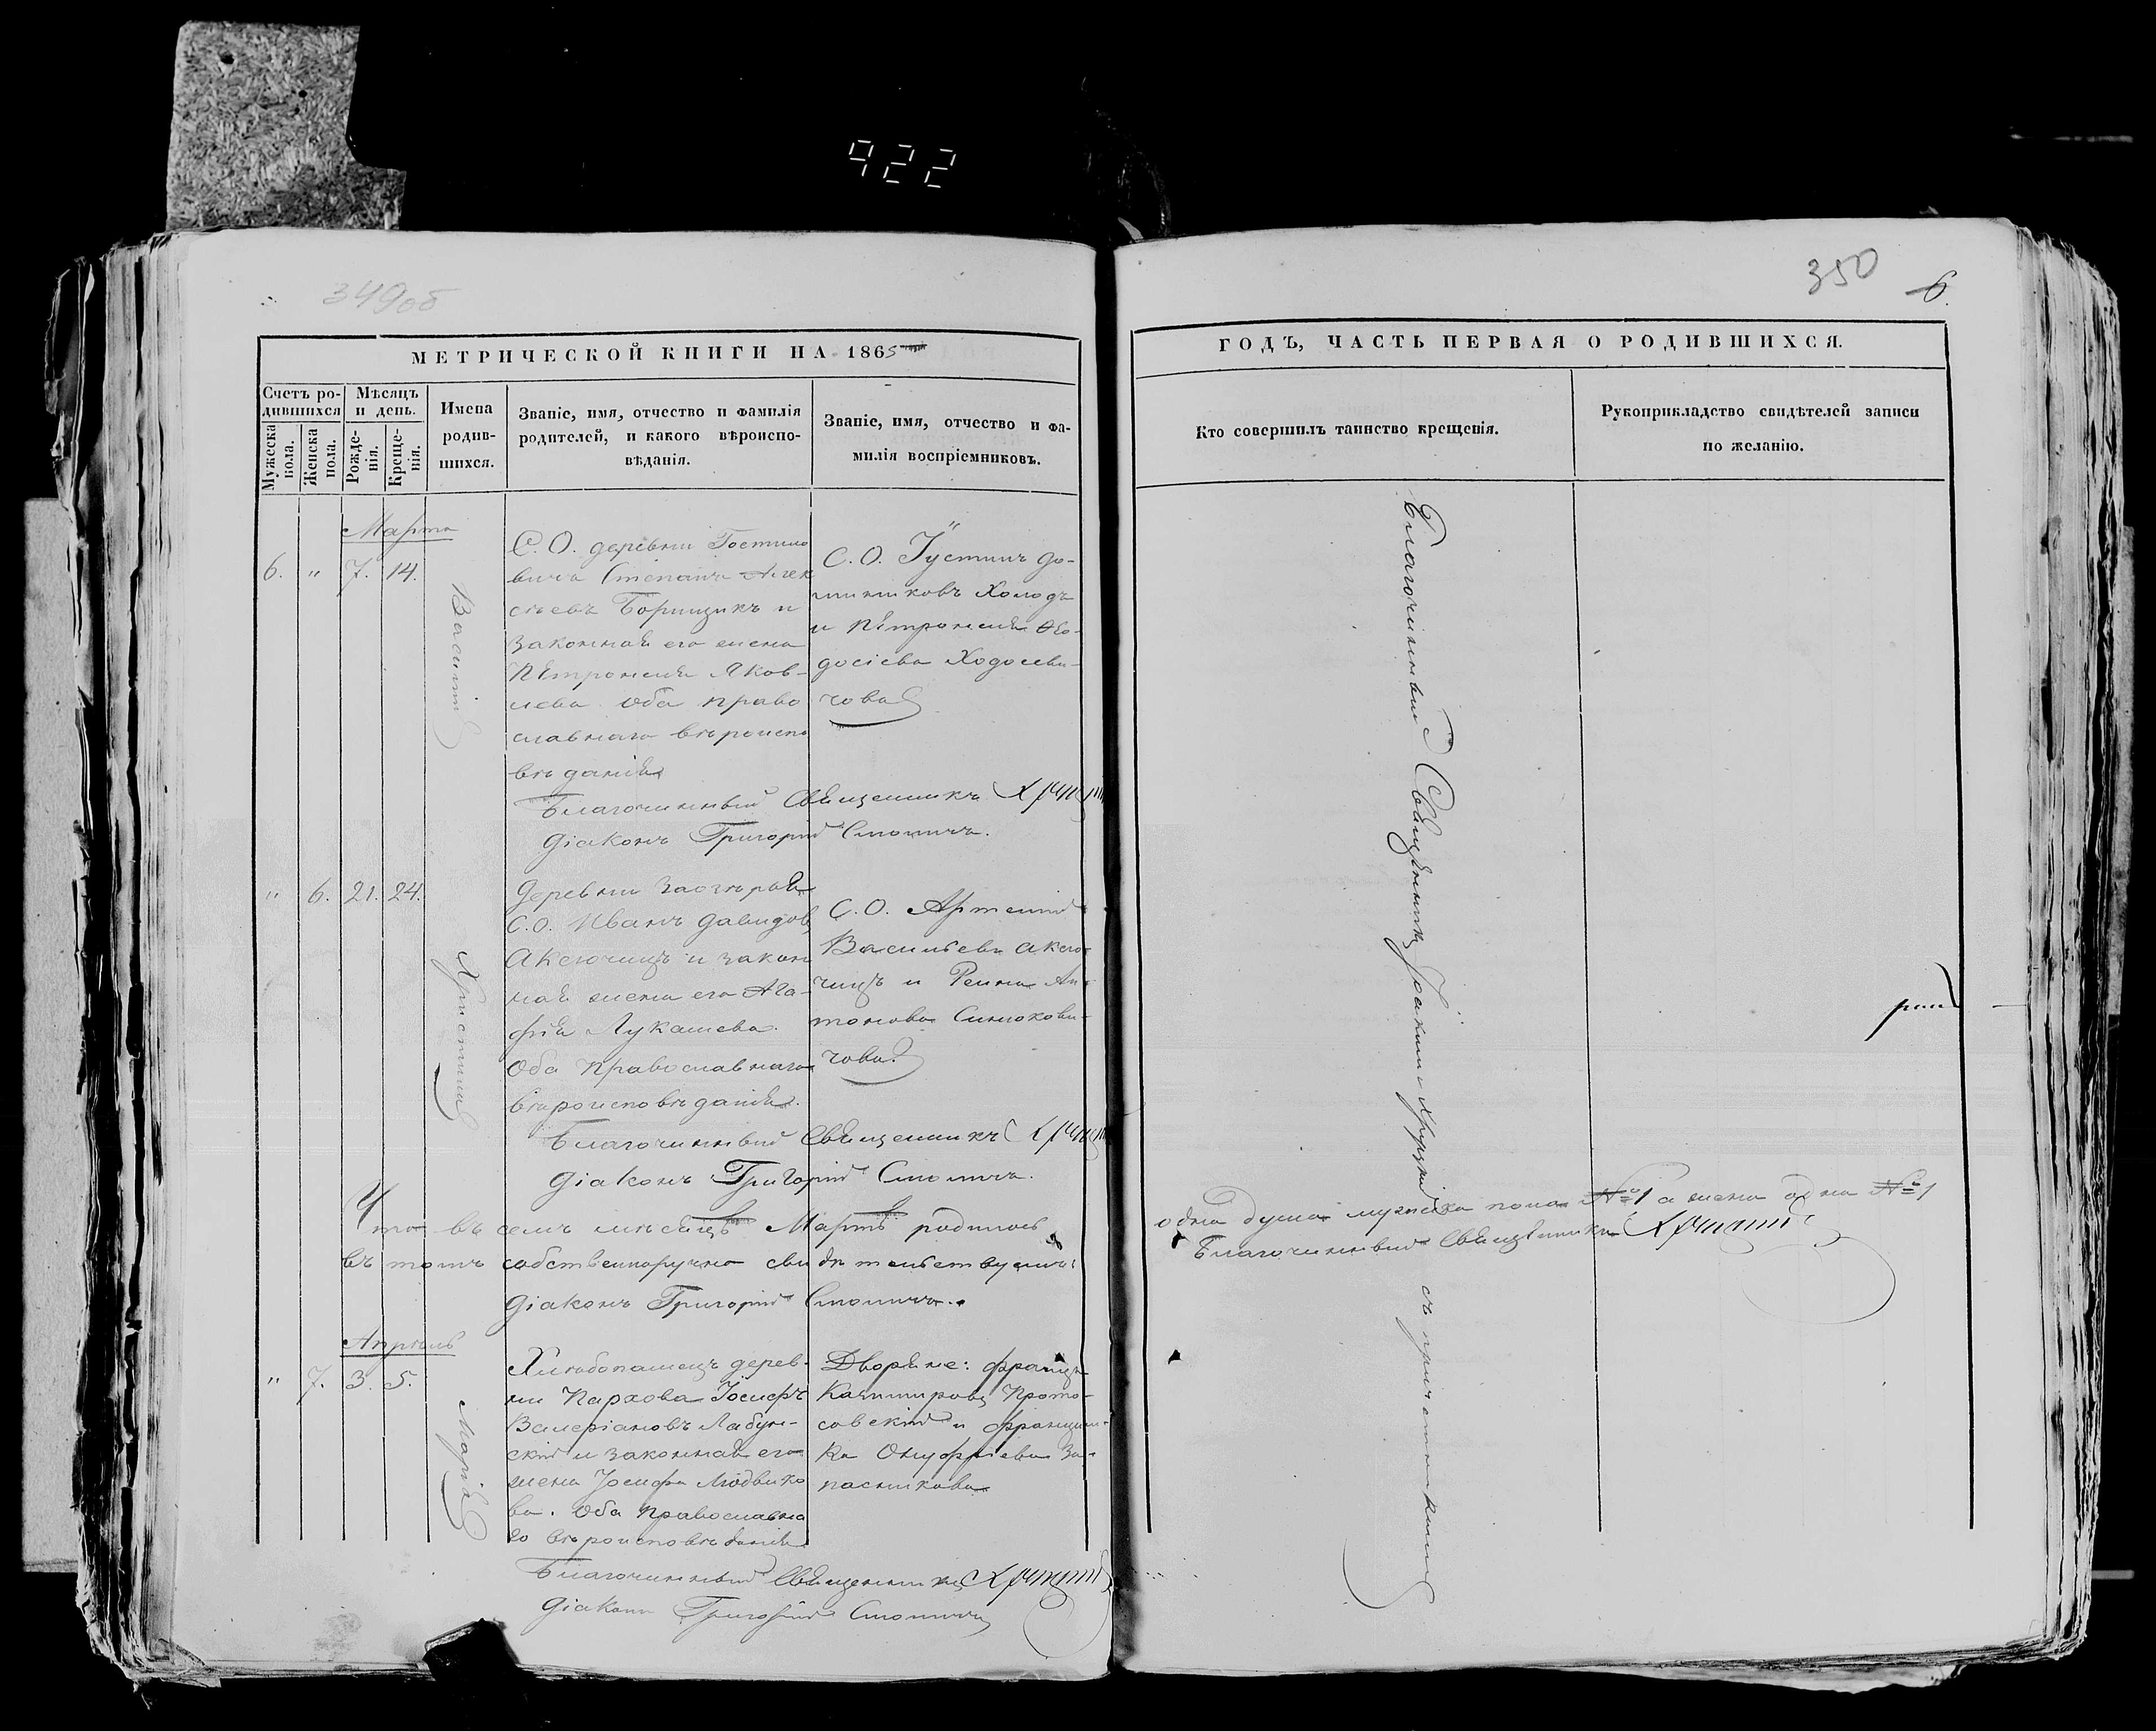 922
349об
МЕТРИЧЕСКОЙ КНИГИ НА 1865
Счетъ ро-
дившихся
Мѣсяцъ
и день.
Мужеска
пола.
Женска
пола.
Рожде-
нія.
Креще-
нія.
Имена
родив-
шихся.
Званіе, имя, отчество и фамилія
родителей, и какого вѣроиспо-
вѣданія.
Званіе, имя, отчество и фа-
милія воспріемниковъ.
Марта
6. " 7. 14.
Василій
С. О. деревни Гостило
вичъ Степанъ Алек
сѣевъ Борищикъ и
законная его жена
Петронеля Яков-
лева оба право
славнаго вѣроиспо
вѣданія
С. О. Іустинъ До-
миниковъ Холодъ
и Петронеля Ѳео-
досіева Ходосеви-
чова
Благочинный Священникъ Хруцкій
Діаконъ Григорій Смоличъ.
" 6. 21. 24.
Христина
Деревни
С. О. Иванъ Давидовъ
Аксючицъ и закон
ная жена его Ага-
фія Лукашева.
Оба Православнаго
вѣроисповѣданія.
С. О. Артемій
Васильевъ Аксю-
чицъ и Ан-
тонова
чова.
Благочинный Священникъ Хруцкій
Діаконъ Григорій Смоличъ.
Что въ семъ мѣсяцѣ Мартѣ родилось
въ томъ собственноручно свидѣтельствуемъ:
Діаконъ Григорій Смоличъ.
Апрѣль
" 7. 3. 5.
Марія
Хлѣбопашецъ дерев-
ни Пархова Іосифъ
Валеріановъ Лабун-
скій и законная его
жена Іосифа Людвико
ва. Оба Православна
го вѣроисповѣданія
Дворяне: Францъ
Казимировъ Прото-
совскій и Францишь-
ка Онуфріева За-
пасникова
Благочинный Священникъ Хруцкій
Діаконъ Григорій Смоличъ
350
6.
ГОДЪ, ЧАСТЬ ПЕРВАЯ О РОДИВШИХСЯ.
Кто совершилъ таинство крещенія.
Рукоприкладство свидѣтелей записи
по желанію.
Благочинный Священникъ Іоакимъ Хруцкій съ причетникомъ
одна душа мужеска пола №1 а жена одна №1
Благочинный Священникъ Хруцкій